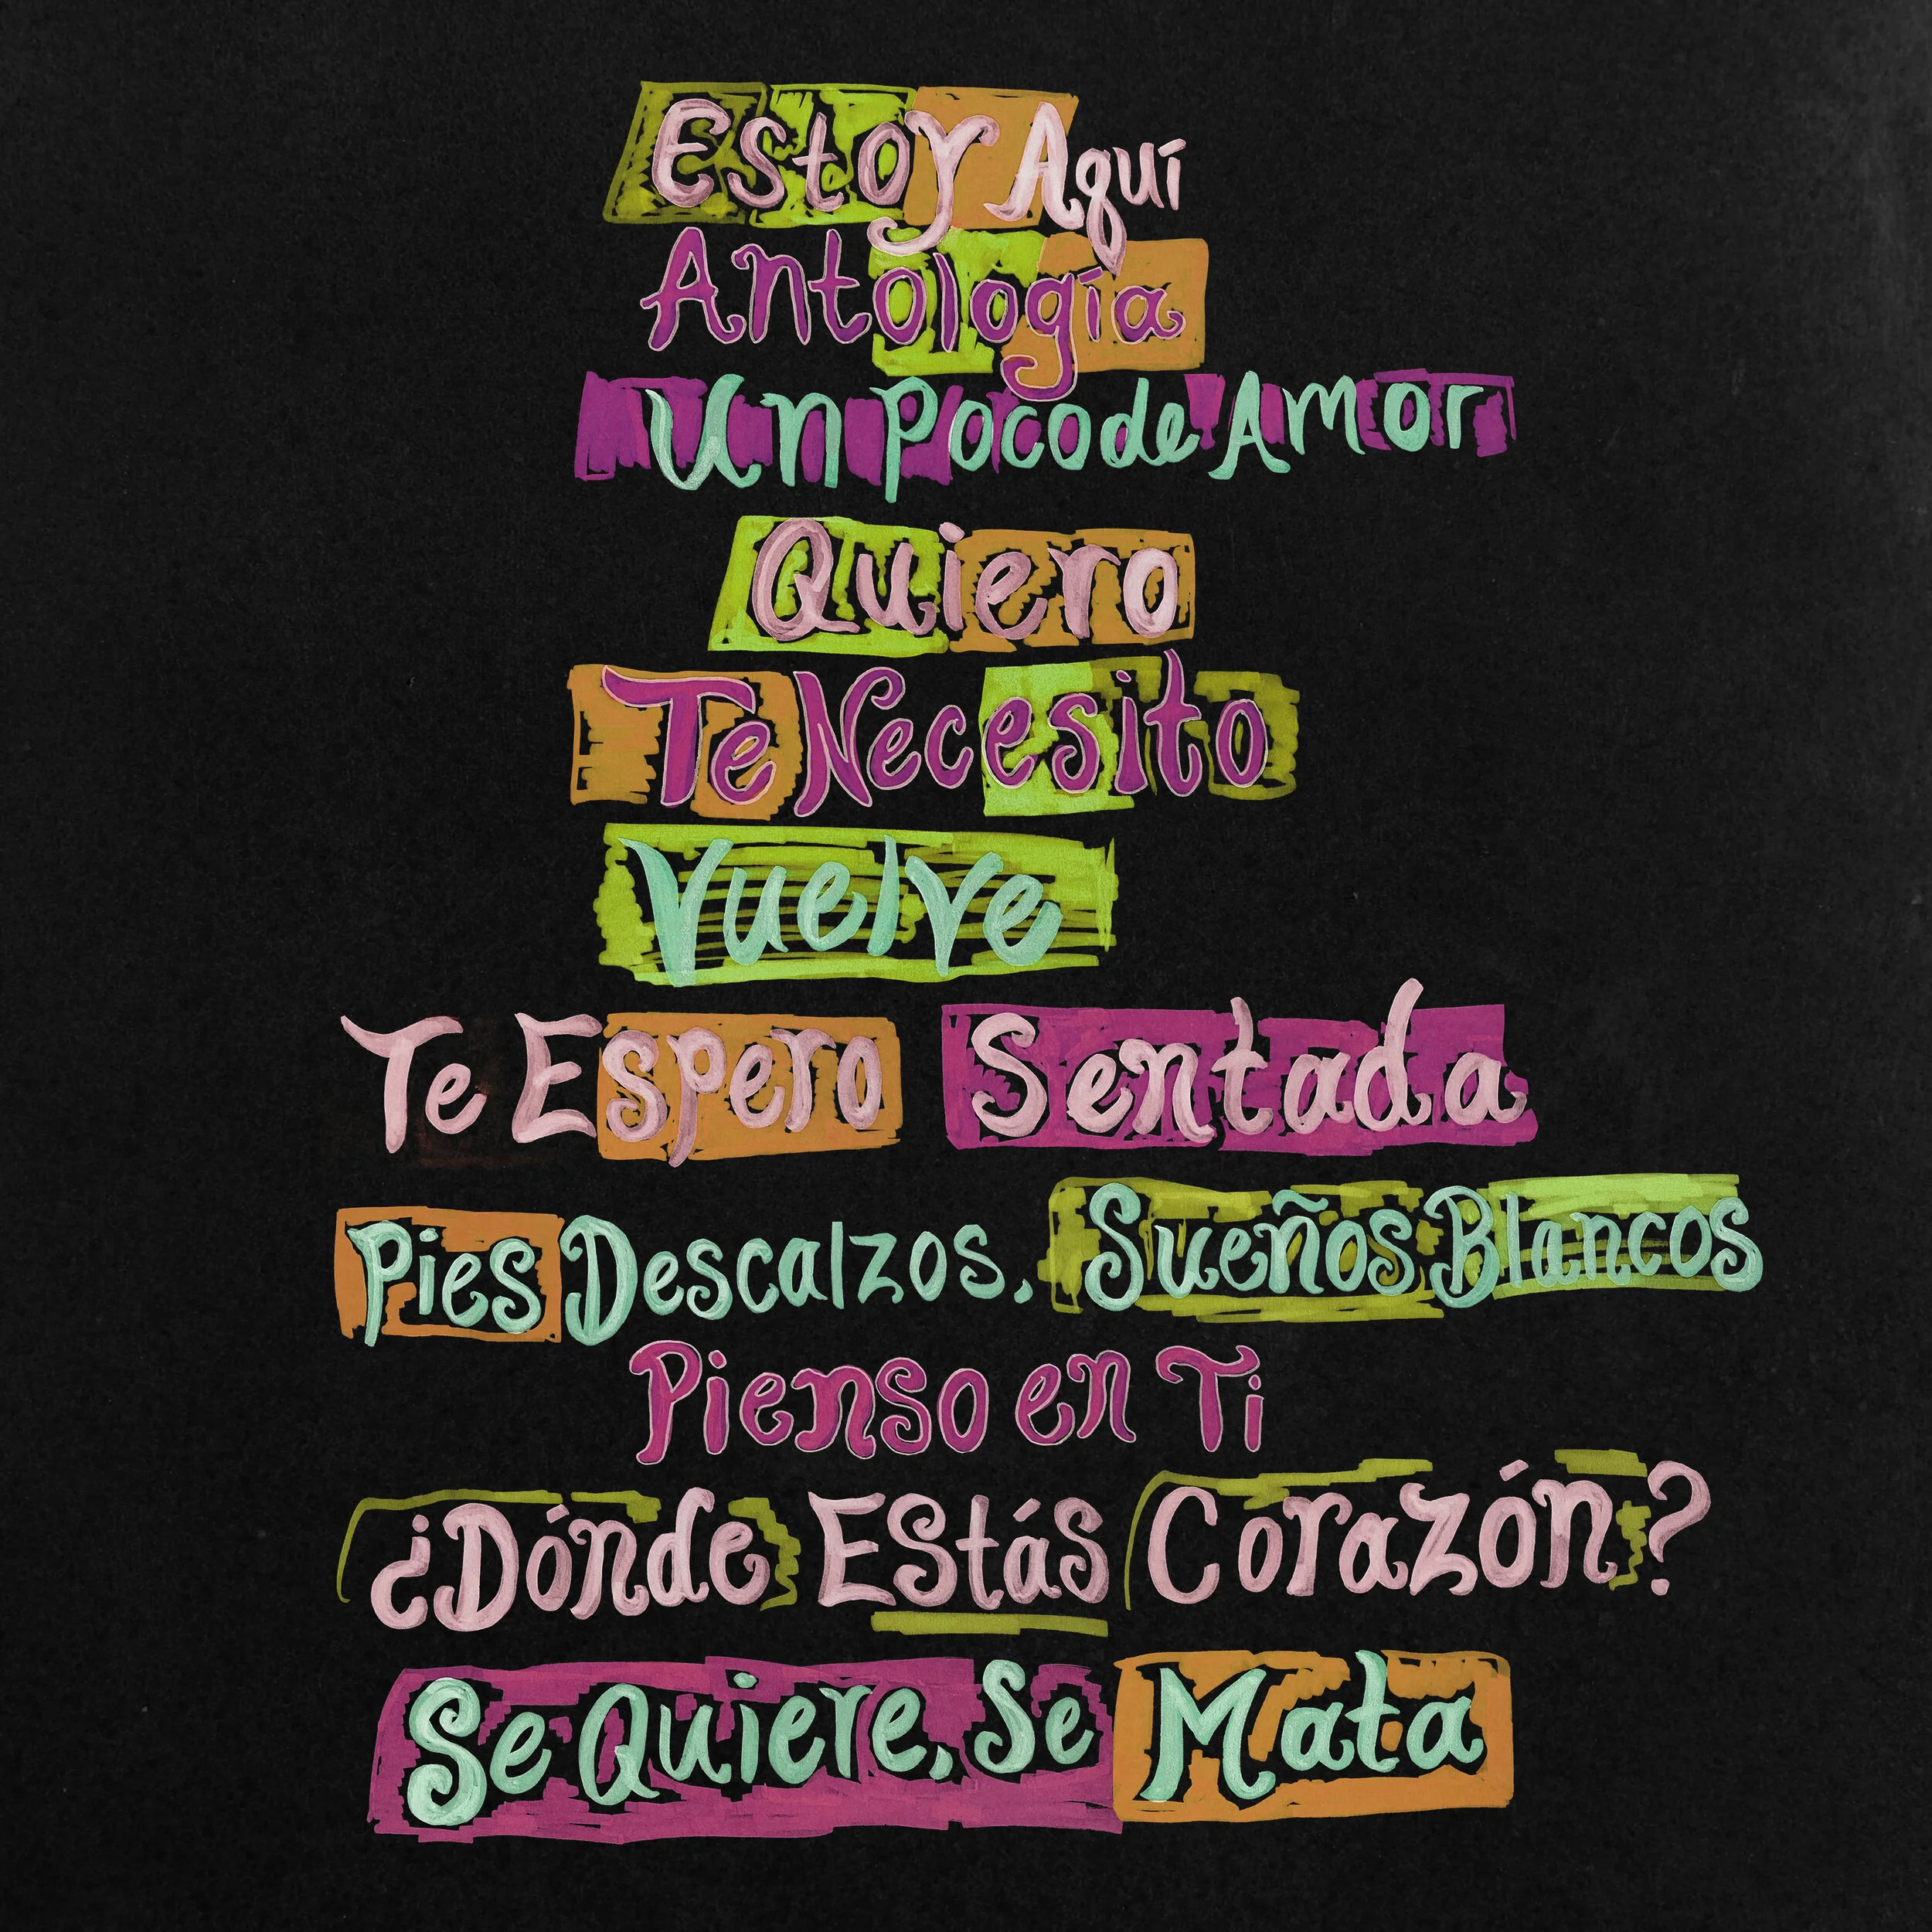 Estoy Aquí
Antología
Un Poco de Amor
Quiero
Te Necesito
Vuelve
Te Espero Sentada
Pies Descalzos, Sueños Blancos
Pienso en Ti
¿Dónde Estás Corazón?
Se Quiere, Se Mata